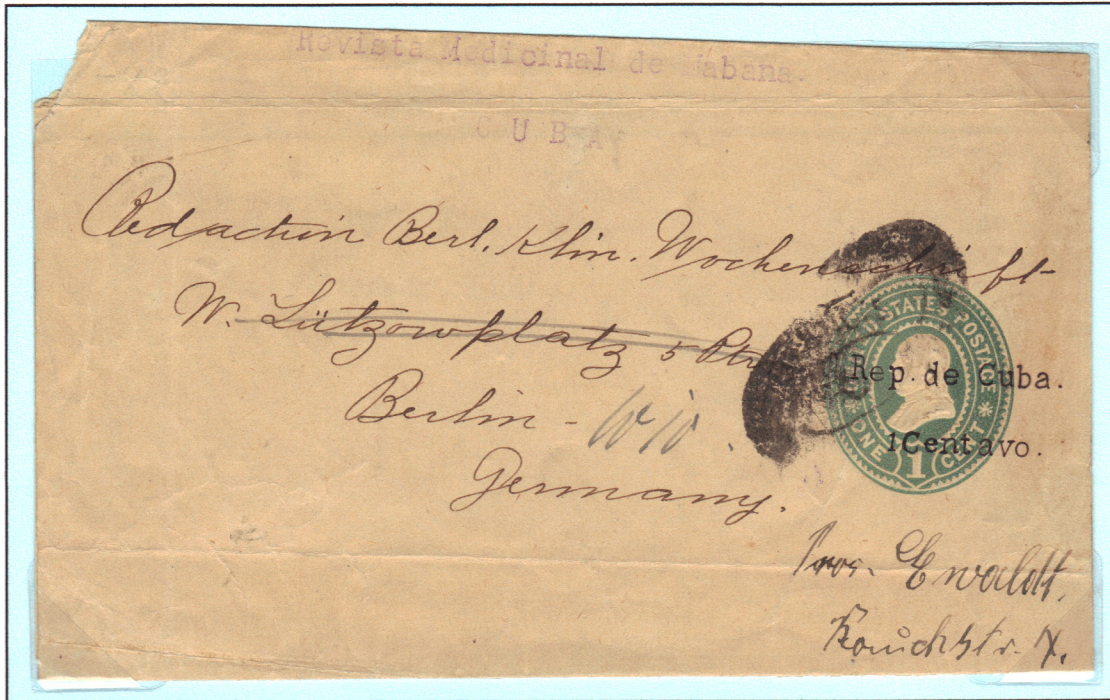 Revista Medicinal de Habana.
CUBA
Redaction Berl. Klin. Wochenschrift
W. Lützowplatz 5 Ptr
Berlin -
Germany.
UNITED STATES POSTAGE
Rep. de Cuba.
1 Centavo.
ONE 1 CENT
Ewaldt.